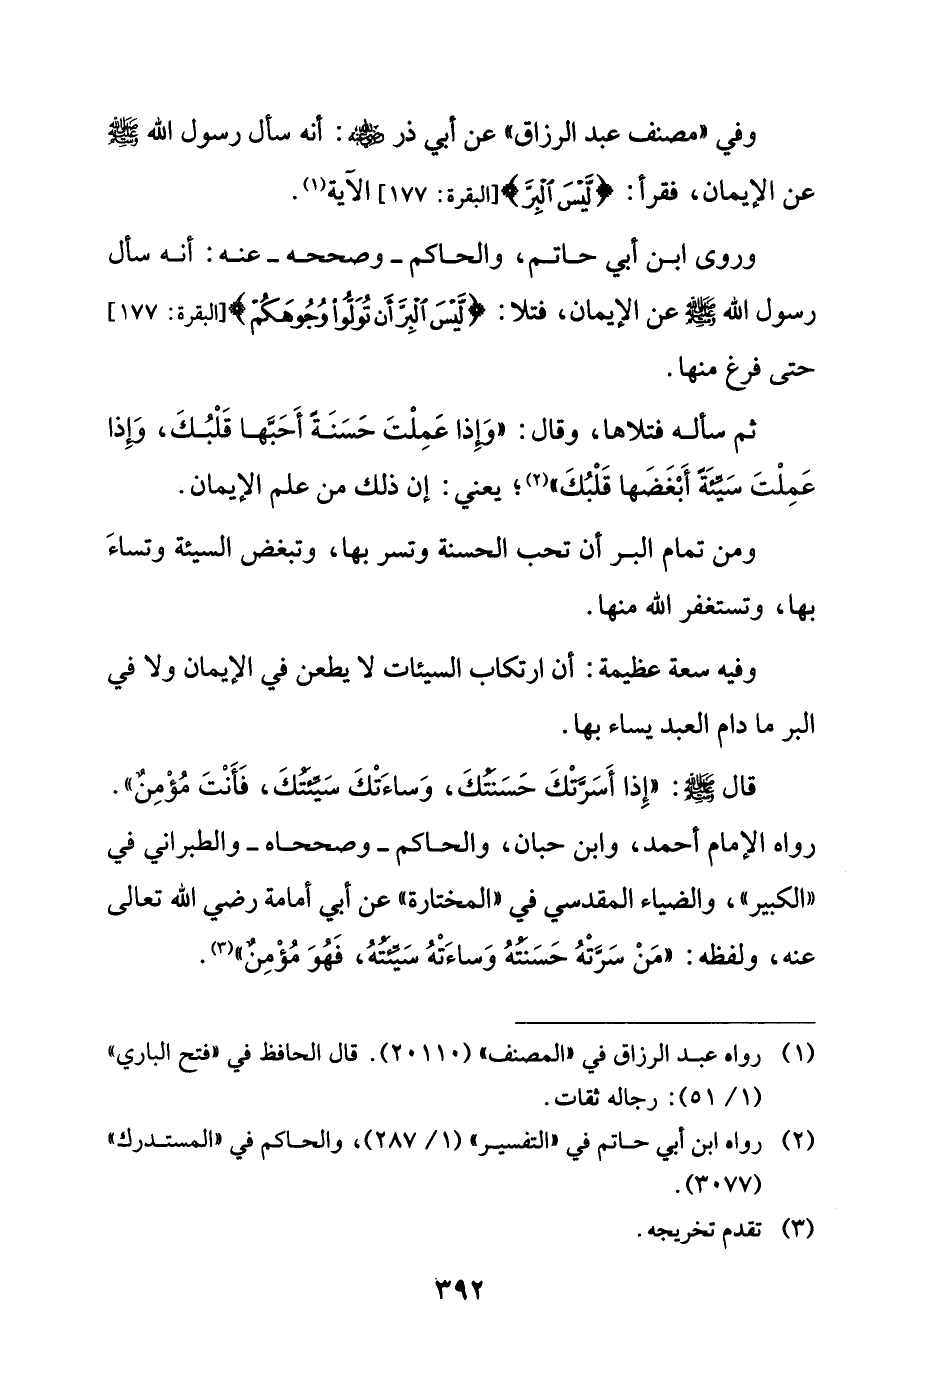 وفي «مصنف عبد الرزاق» عن أبي ذر رضي الله عنه: أنه سأل رسول الله ﷺ
عن الإيمان، فقرأ: ﴿لَّيْسَ ٱلْبِرَّ﴾[البقرة: ١٧٧] الآية(١).
وروى ابن أبي حاتم، والحاكم ـ وصححه ـ عنه: أنه سأل
رسول الله ﷺ عن الإيمان، فتلا: ﴿لَّيْسَ ٱلْبِرَّ أَن تُوَلُّوا۟ وُجُوهَكُمْ﴾[البقرة: ١٧٧]
حتى فرغ منها.
ثم سأله فتلاها، وقال: «وَإِذا عَمِلْتَ حَسَنَةً أَحَبَّها قَلْبُكَ، وَإِذا
عَمِلْتَ سَيِّئَةً أَبْغَضَها قَلْبُكَ»(٢)؛ يعني: إن ذلك من علم الإيمان.
ومن تمام البر أن تحب الحسنة وتسر بها، وتبغض السيئة وتساءَ
بها، وتستغفر الله منها.
وفيه سعة عظيمة: أن ارتكاب السيئات لا يطعن في الإيمان ولا في
البر ما دام العبد يساء بها.
قال ﷺ: «إِذا أَسَرَّتْكَ حَسَنَتُكَ، وَساءَتْكَ سَيِّئَتُكَ، فَأَنْتَ مُؤْمِنٌ».
رواه الإمام أحمد، وابن حبان، والحاكم ـ وصححاه ـ والطبراني في
«الكبير»، والضياء المقدسي في «المختارة» عن أبي أمامة رضي الله تعالى
عنه، ولفظه: «مَنْ سَرَّتْهُ حَسَنَتُهُ وَساءَتْهُ سَيِّئَتُهُ، فَهُوَ مُؤْمِنٌ»(٣).
(١) رواه عبد الرزاق في «المصنف» (٢٠١١٠). قال الحافظ في «فتح الباري»
(١/ ٥١): رجاله ثقات.
(٢) رواه ابن أبي حاتم في «التفسير» (١/ ٢٨٧)، والحاكم في «المستدرك»
(٣٠٧٧).
(٣) تقدم تخريجه.
٣٩٢